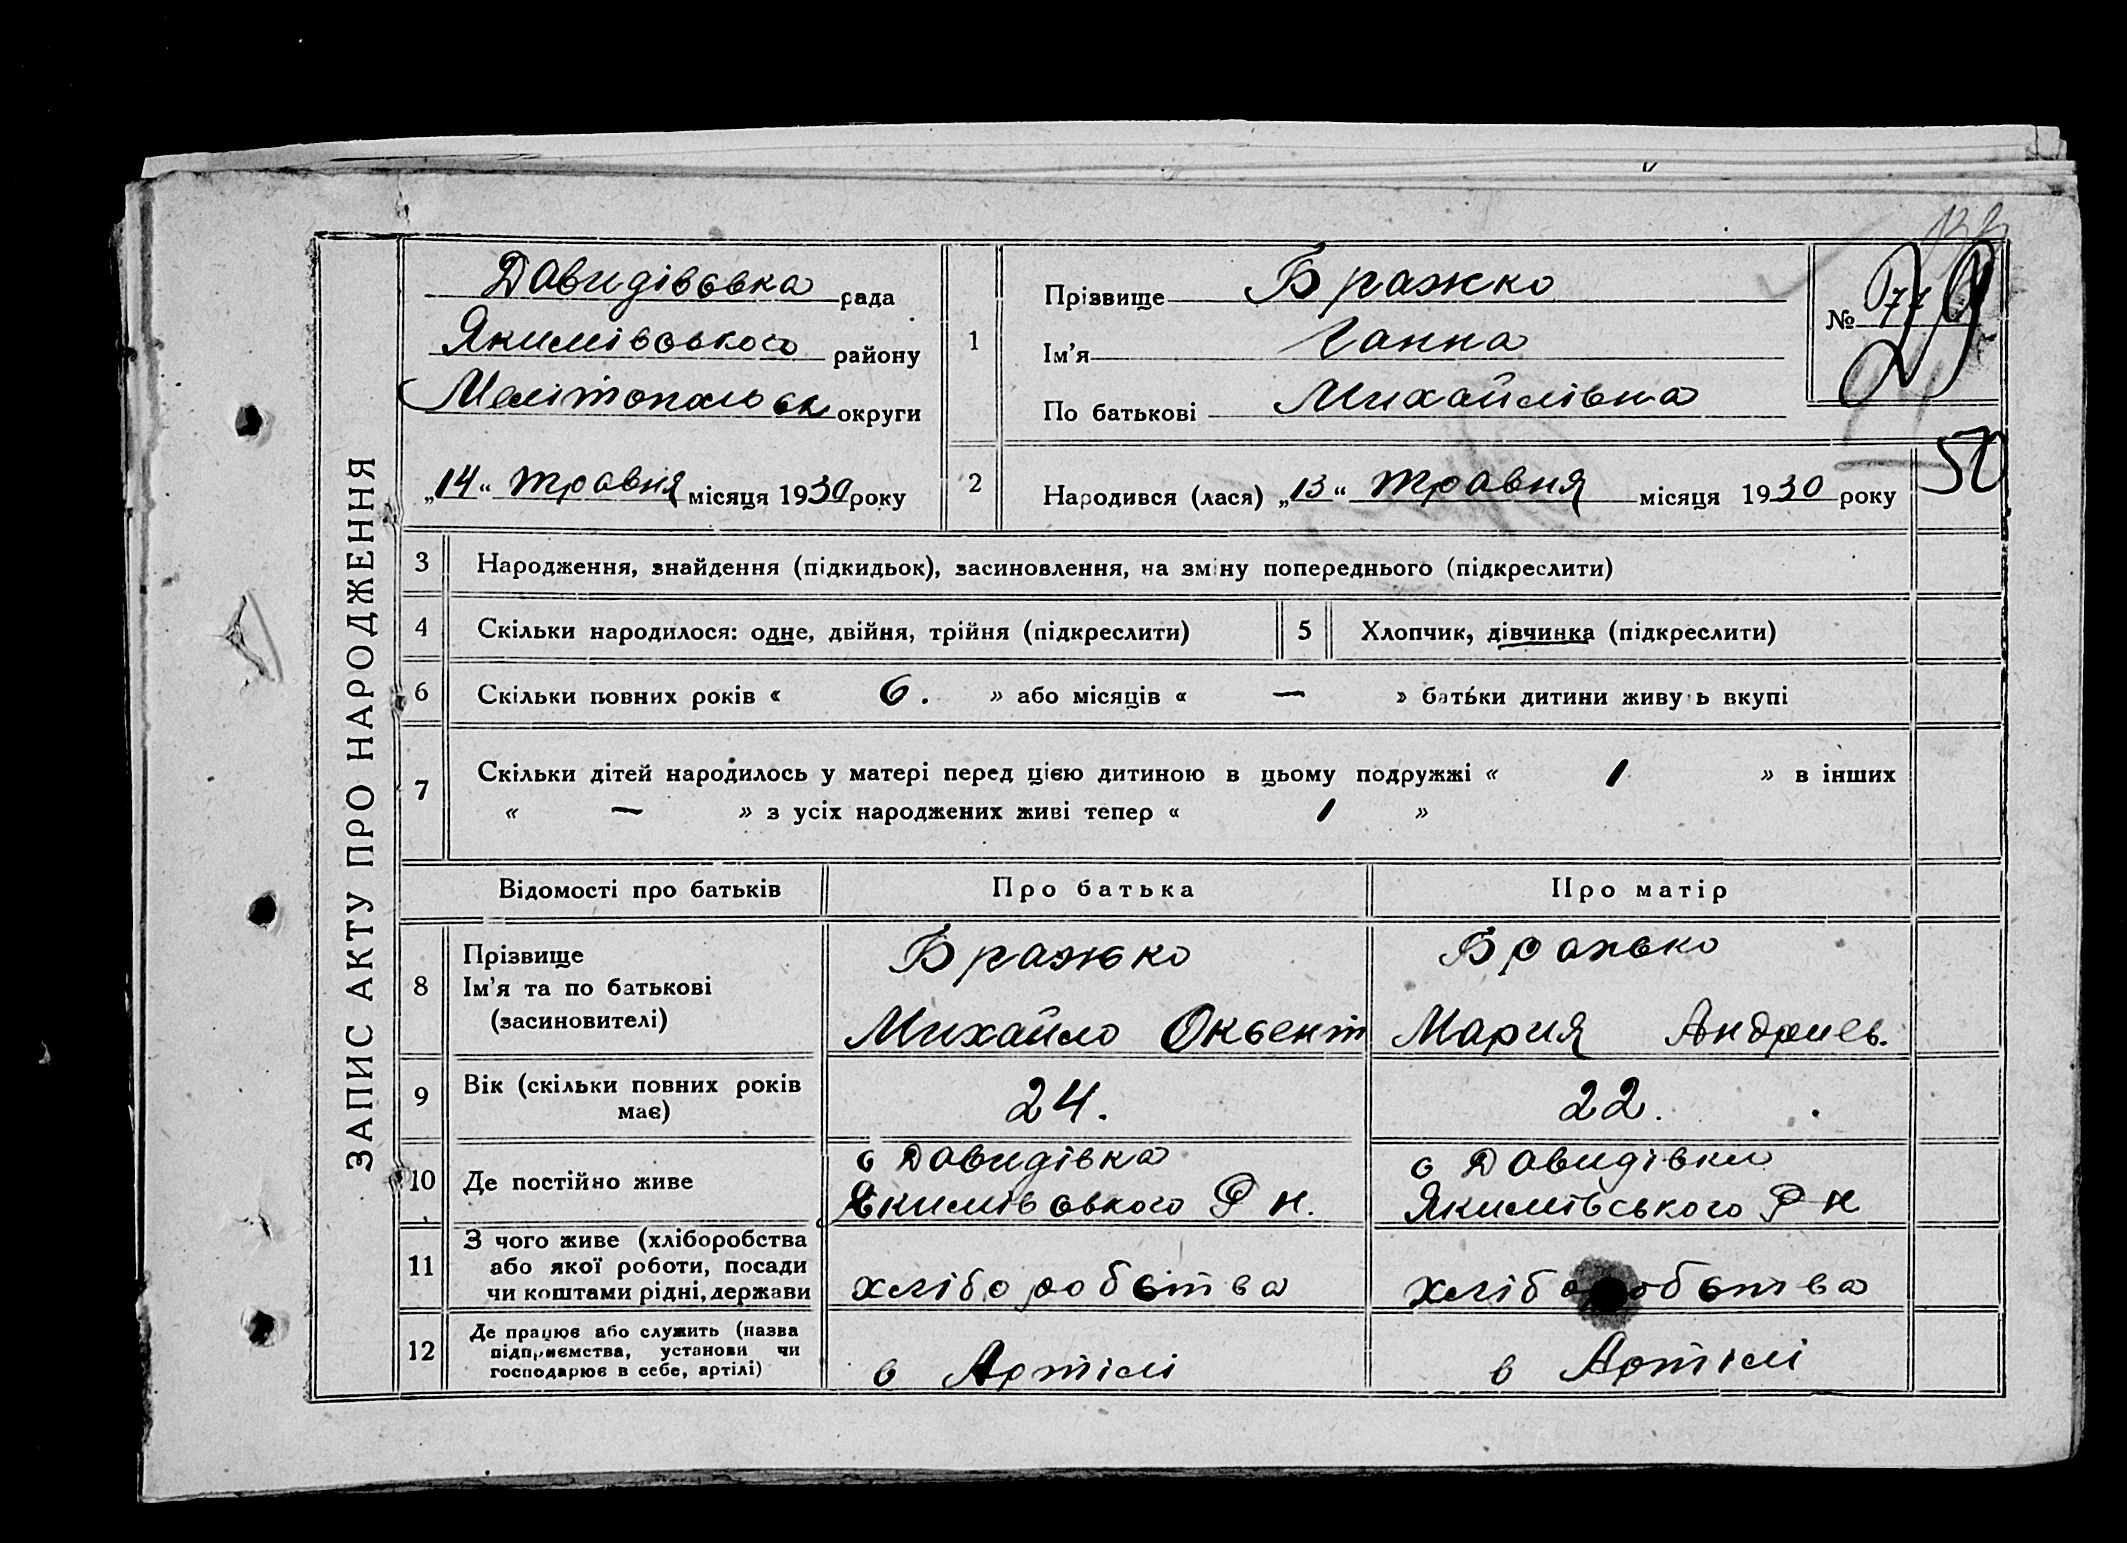 ЗАПИС АКТУ ПРО НАРОДЖЕННЯ
Давидівська рада
Якимівського району
Мелітопольськ округи
„14“ травня місяця 1930 року
1
Прізвище Бражко
Ім'я Ганна
По батькові Михайлівна
№
29
50
2 Народився (лася) „13“ травня місяця 1930 року
3 Народження, знайдення (підкидьок), засиновлення, на зміну попереднього (підкреслити)
4 Скільки народилося: одне, двійня, трійня (підкреслити) 5 Хлопчик, дівчинка (підкреслити)
6 Скільки повних років « 6. » або місяців « — » батьки дитини живуть вкупі
7 Скільки дітей народилось у матері перед цією дитиною в цьому подружжі « 1 » в інших
« — » з усіх народжених живі тепер « 1 »
Відомості про батьків Про батька Про матір
8 Прізвище Бражько Бражько
Ім'я та по батькові
(засиновителі) Михайло Оксент Мария Андриев.
9 Вік (скільки повних років
має) 24. 22.
10 Де постійно живе с Давидівка с Давидівка
Якимівського Р н. Якимівського Р н
11 З чого живе (хліборобства
або якої роботи, посади
чи коштами рідні, держави хліборобства хліборобства
12 Де працює або служить (назва
підприємства, установи чи
господарює в себе, артілі) в Артілі в Артілі